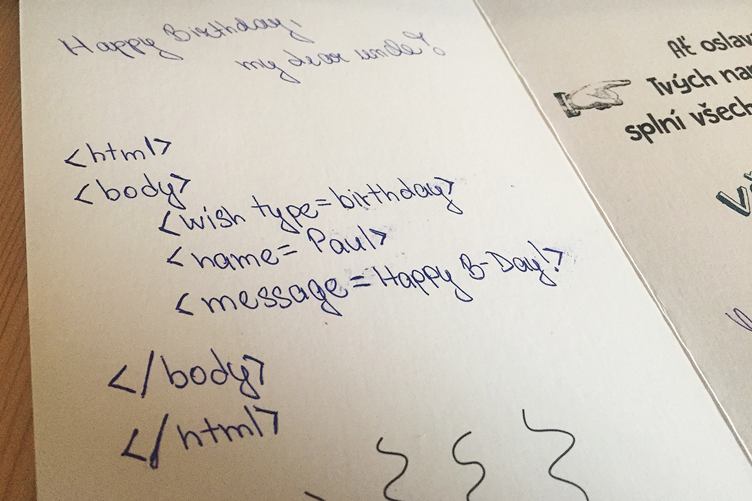 Happy Birthday,
my dear uncle!
<html>
<body>
<wish type=birthday>
<name= Paul>
<message=Happy B-Day!>
</body>
</html>
Ať oslav
Tvých nar
splní všech